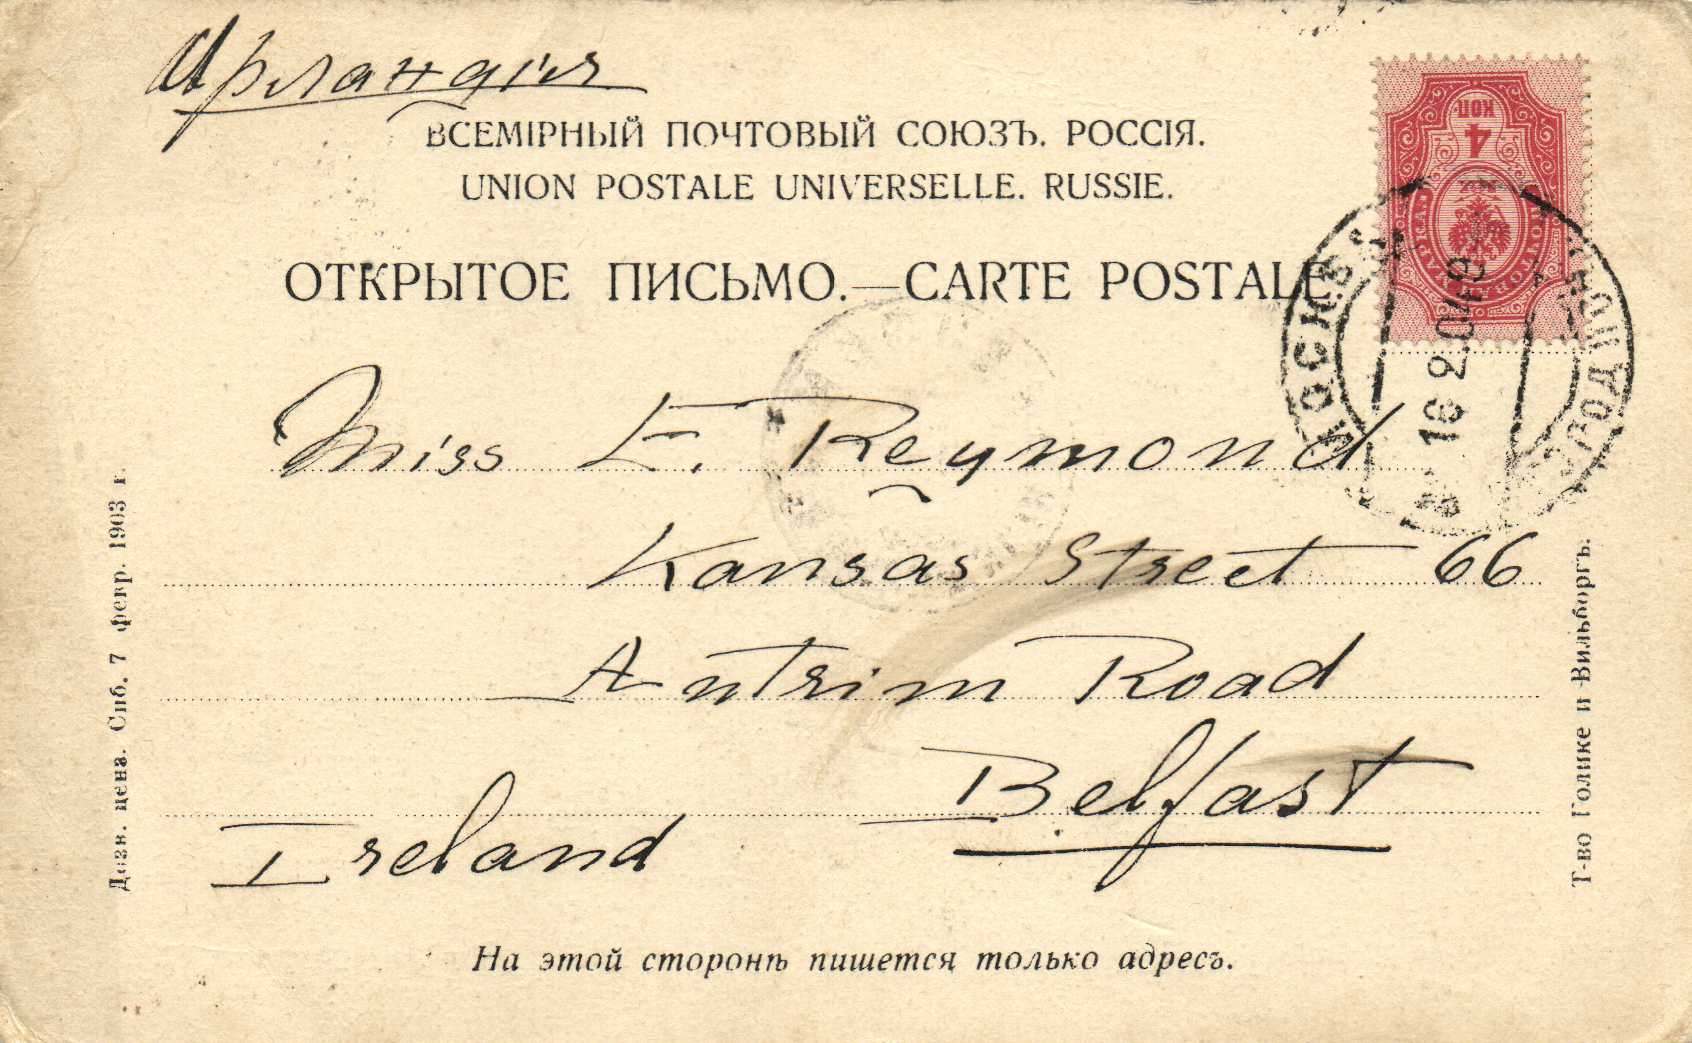 Ирландія
ВСЕМІРНЫЙ ПОЧТОВЫЙ СОЮЗЪ. РОССІЯ.
UNION POSTALE UNIVERSELLE. RUSSIE.
ОТКРЫТОЕ ПИСЬМО.—CARTE POSTALE
4
КОП
МОСКВА
16 2 04 9
Miss E. Reymond
Kansas Street 66
Antrim Road
Belfast
Ireland
На этой сторонѣ пишется только адресъ.
Дозв. ценз. Спб. 7 февр. 1903 г.
Т-во Голике и Вильборгъ.